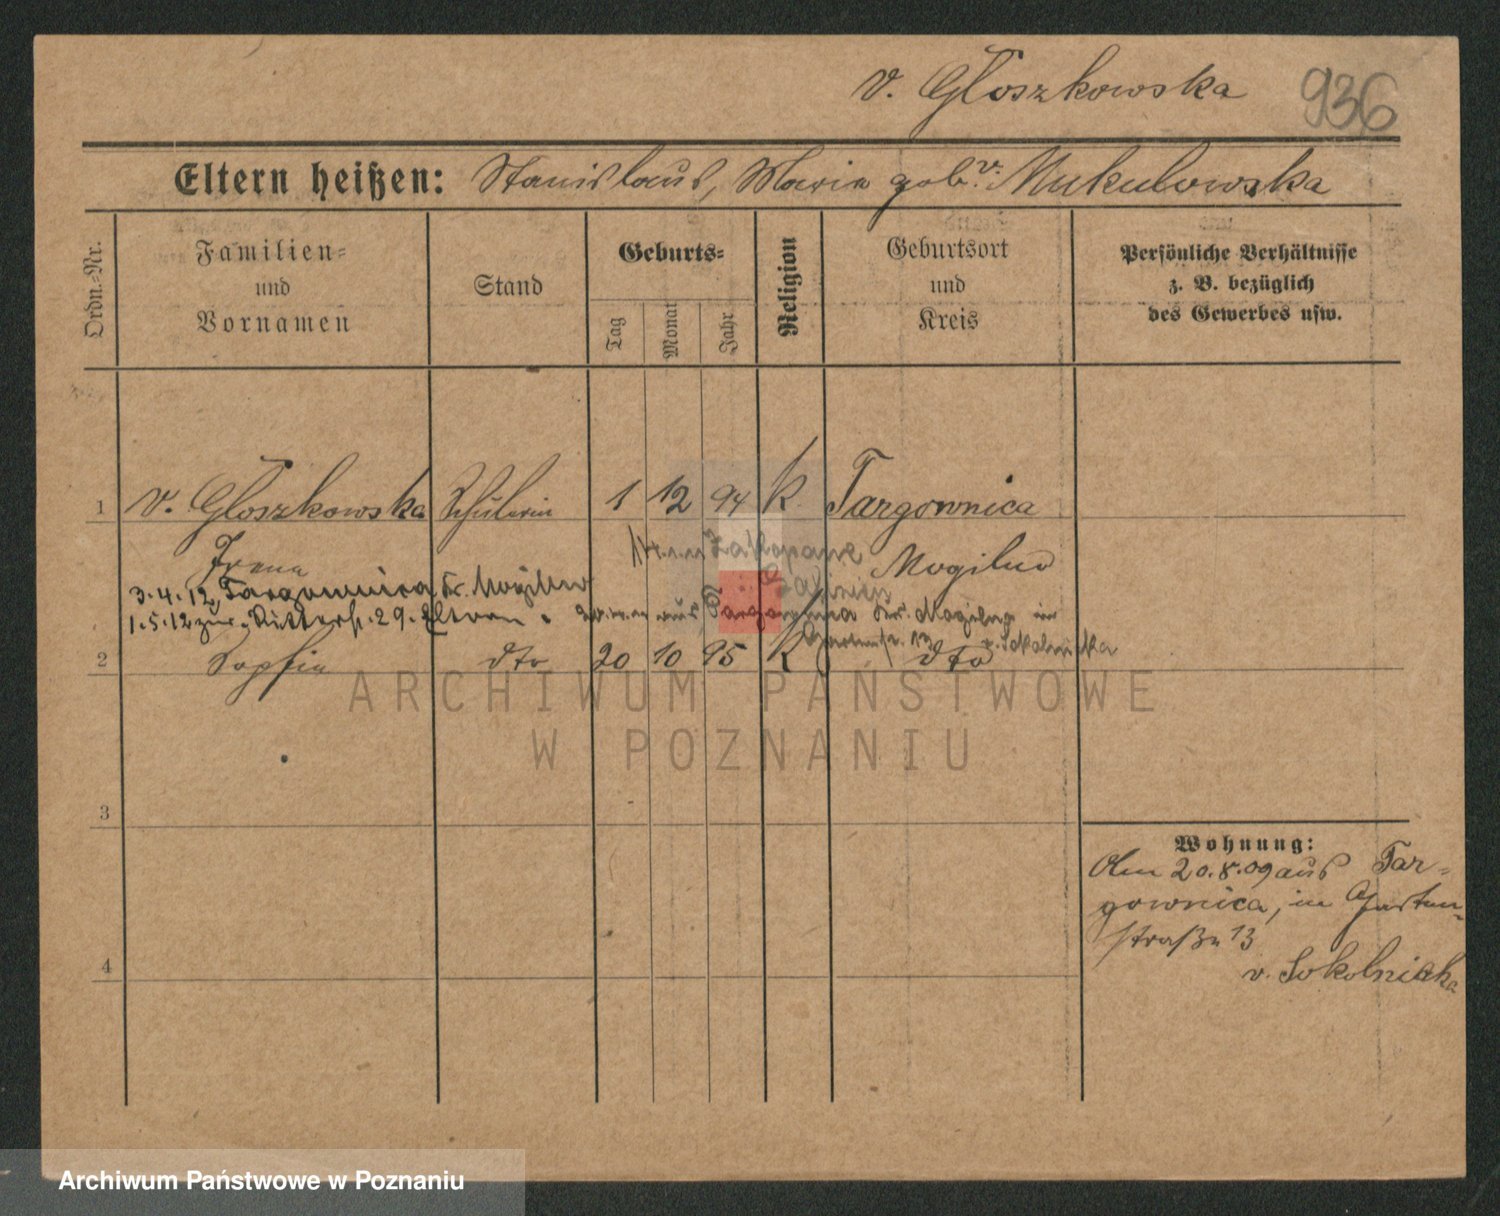 v. Głoszkowska 936
Eltern heißen: Stanislaus, Maria geb. v. Mukulowska
Ordn.-Nr.
Familien-
und
Vornamen
Stand
Geburts-
Tag
Monat
Jahr
Religion
Geburtsort
und
Kreis
Persönliche Verhältnisse
z. B. bezüglich
des Gewerbes usw.
1 v. Głoszkowska Schülerin 1 12 94 K. Targownica
Irena Mogilno
Zakopane
Galizien
3.4.12 Targownica Kr. Mogilno
1.5.12 zur. Ritterstr. 29. Eltern. aus Targownica Kr. Mogilno in
Gartenstr. 13 v. Sokolnicka
2 Sophie dto 20 10 95 K dto
3
4
Wohnung:
Am 20.8.09 aus Tar-
gownica, in Garten-
straße 13
v. Sokolnicka
ARCHIWUM PAŃSTWOWE
W POZNANIU
Archiwum Państwowe w Poznaniu